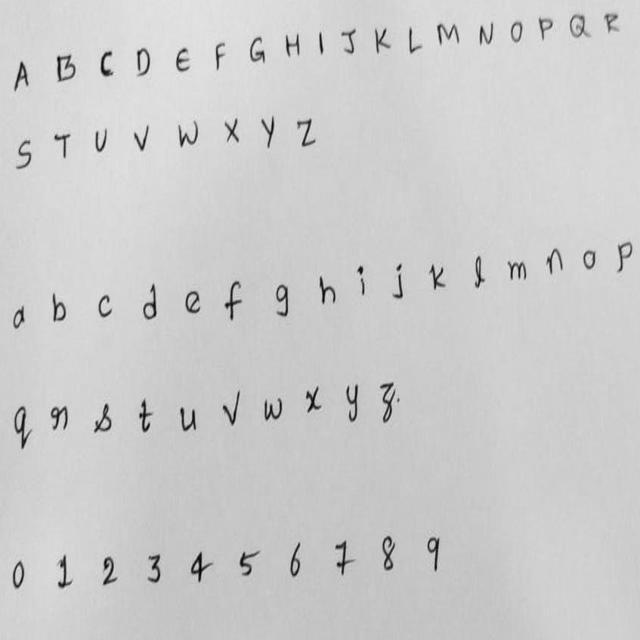 A B C D E F G H I J K L M N O P Q R
S T U V W X Y Z
a b c d e f g h i j k l m n o p
q r s t u v w x y z
0 1 2 3 4 5 6 7 8 9